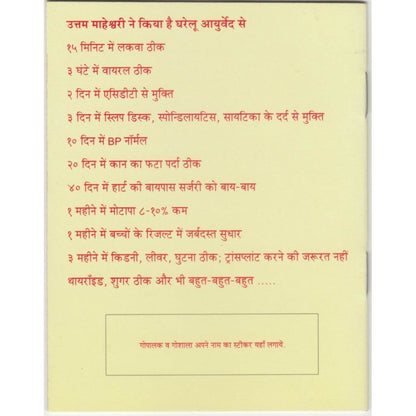 उत्तम माहेश्वरी ने किया है घरेलू आयुर्वेद से
१५ मिनिट में लकवा ठीक
३ घंटे में वायरल ठीक
२ दिन में एसिडीटी से मुक्ति
३ दिन में स्लिप डिस्क, स्पोन्डिलायटिस, सायटिका के दर्द से मुक्ति
१० दिन में BP नॉर्मल
२० दिन में कान का फटा पर्दा ठीक
४० दिन में हार्ट की बायपास सर्जरी को बाय-बाय
१ महीने में मोटापा ८-१०% कम
१ महीने में बच्चों के रिजल्ट में जर्बदस्त सुधार
३ महीने में किडनी, लीवर, घुटना ठीक; ट्रांसप्लांट करने की जरूरत नहीं
थायराँइड, शुगर ठीक और भी बहुत-बहुत-बहुत .....
गोपालक व गोशाला अपने नाम का स्टीकर यहाँ लगाये.